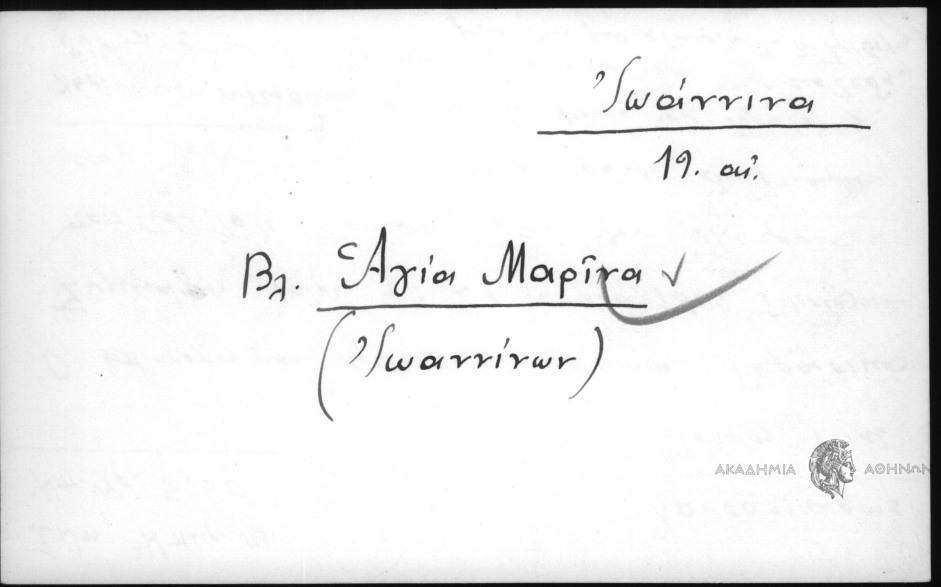 Ἰωάννινα
19. αἰ.
Βλ. Ἁγία Μαρῖνα ✓
(Ἰωαννίνων)
ΑΚΑΔΗΜΙΑ ΑΘΗΝΩΝ